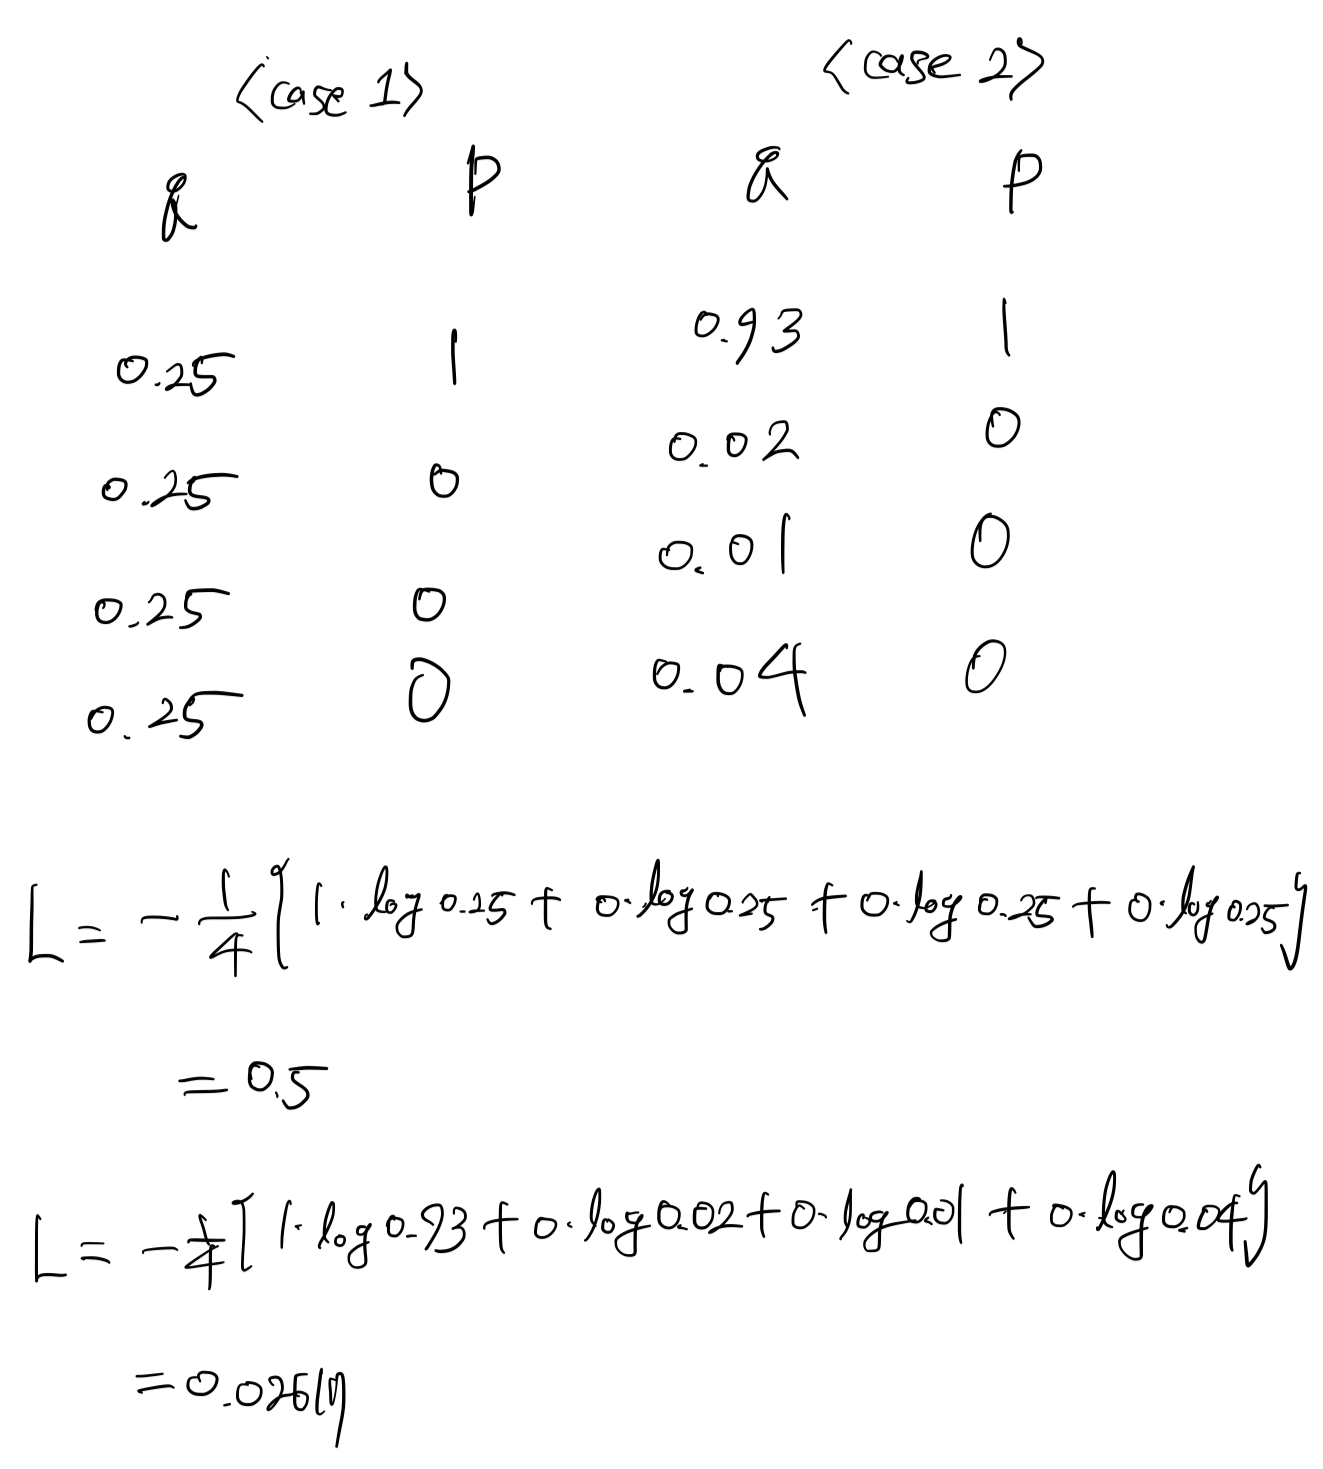 <case 1> <case 2>
Q P Q P
0.25 1 0.93 1
0.25 0 0.02 0
0.25 0 0.01 0
0.25 0 0.04 0
L = - 1/4 { 1· log 0.25 + 0· log 0.25 + 0· log 0.25 + 0· log 0.25 }
= 0.5
L = - 1/4 { 1· log 0.93 + 0· log 0.02 + 0· log 0.01 + 0· log 0.04 }
= 0.02617